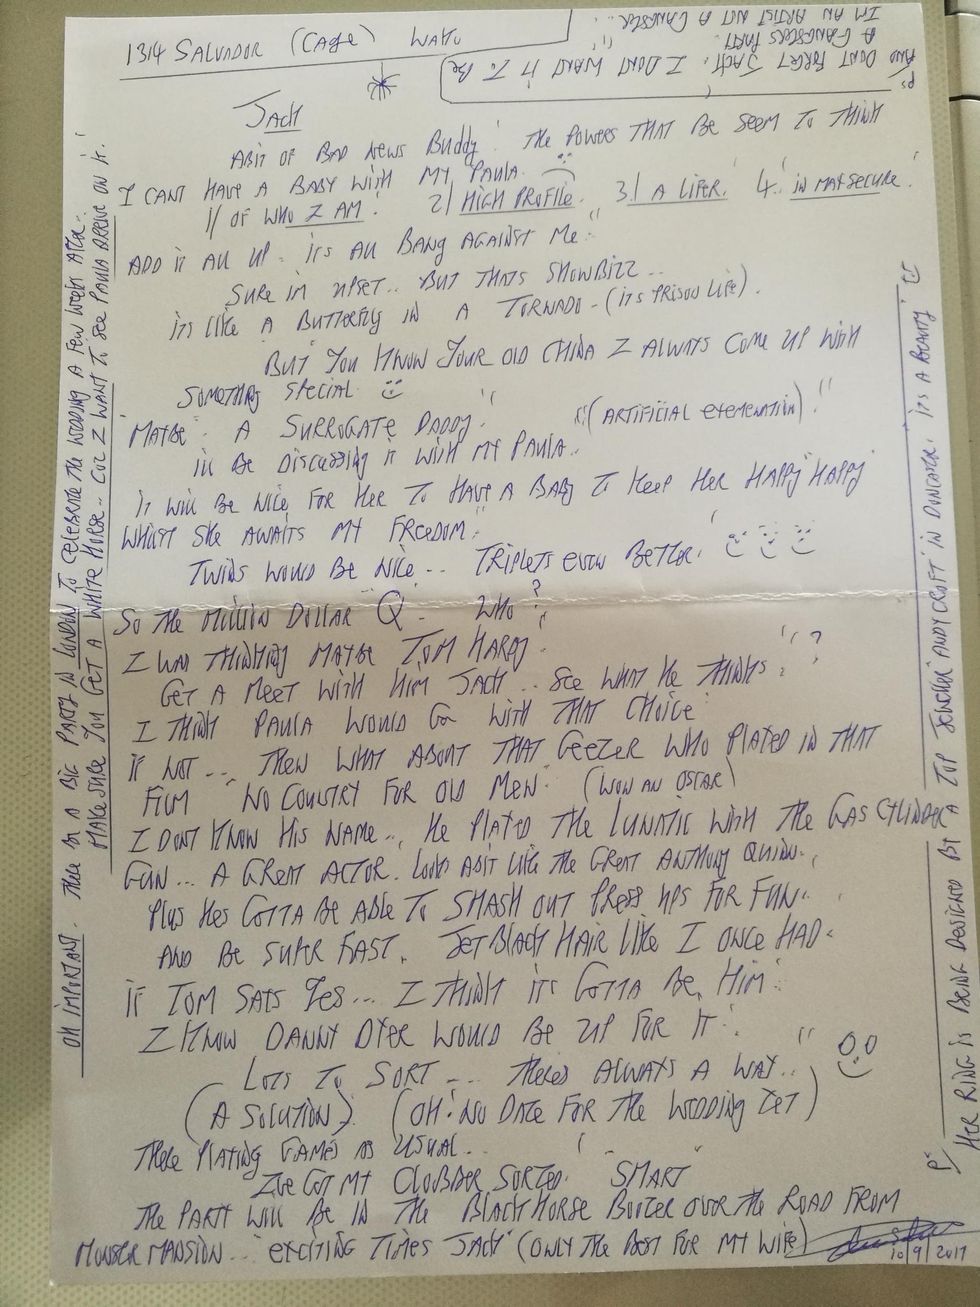 1314 SALVADOR (CAGE) WAKE
PS
AND DONT FORGET JACK. I DONT WANT IT TO BE
A GANGSTERS PARTY.
IM AN ARTIST NOT A GANGSTER...
JACK
ABIT OF BAD NEWS BUDDY! THE POWERS THAT BE SEEM TO THINK
I CANT HAVE A BABY WITH MY PAULA.
1/ OF WHO I AM. 2/ HIGH PROFILE. 3/ A LIFER. 4. IN MAX SECURE.
ADD IT ALL UP. ITS ALL BANG AGAINST ME.
SURE IM UPSET.. BUT THATS SHOWBIZZ..
ITS LIKE A BUTTERFLY IN A TORNADO - (ITS PRISON LIFE).
BUT YOU KNOW YOUR OLD CHINA I ALWAYS COME UP WITH
SOMETHING SPECIAL
MAYBE. A SURROGATE DADDY. "(ARTIFICIAL EXEMENATION)."
ILL BE DISCUSSING IT WITH MY PAULA..
IT WILL BE NICE FOR HER TO HAVE A BABY TO KEEP HER HAPPY HAPPY
WHILST SHE AWAITS MY FREEDOM.
TWINS WOULD BE NICE... TRIPLETS EVEN BETTER!
SO THE MILLION DOLLAR Q. WHO?
I WAS THINKING MAYBE TOM HARDY.
GET A MEET WITH HIM JACK.. SEE WHAT HE THINKS.?
I THINK PAULA WOULD GO WITH THAT CHOICE
IF NOT... THEN WHAT ABOUT THAT GEEZER WHO PLAYED IN THAT
FILM NO COUNTRY FOR OLD MEN. (WON AN OSCAR)
I DONT KNOW HIS NAME.. HE PLAYED THE LUNATIC WITH THE GAS CYLINDER
GUN... A GREAT ACTOR. LOOKS ABIT LIKE THE GREAT ANTHONY QUINN.
PLUS HES GOTTA BE ABLE TO SMASH OUT PRESS UPS FOR FUN.
AND BE SUPER FAST. JET BLACK HAIR LIKE I ONCE HAD.
IF TOM SAYS YES... I THINK ITS GOTTA BE HIM.
I KNOW DANNY DYER WOULD BE UP FOR IT.
LOTS TO SORT... THERES ALWAYS A WAY..
(A SOLUTION). (OH! NO DATE FOR THE WEDDING YET)
THERE PLAYING GAMES AS USUAL..
IVE GOT MY CLOBBER SORTED. SMART
THE PARTY WILL BE IN THE BLACK HORSE BOOZER OVER THE ROAD FROM
MONSER MANSION.. EXCITING TIMES JACK (ONLY THE BEST FOR MY WIFE)
10/9/2017
OH IMPORTANT. THERES A BIG PARTY IN LONDON TO CELEBRATE THE WEDDING A FEW WEEKS AFTER.
MAKE SURE YOU GET A WHITE HORSE.. COZ I WANT TO SEE PAULA ARRIVE ON IT.
PS HER RING IS BEING DESIGNED BY A TOP JEWELLER ANDY CROFT IN DONCASTER. ITS A BEAUTY